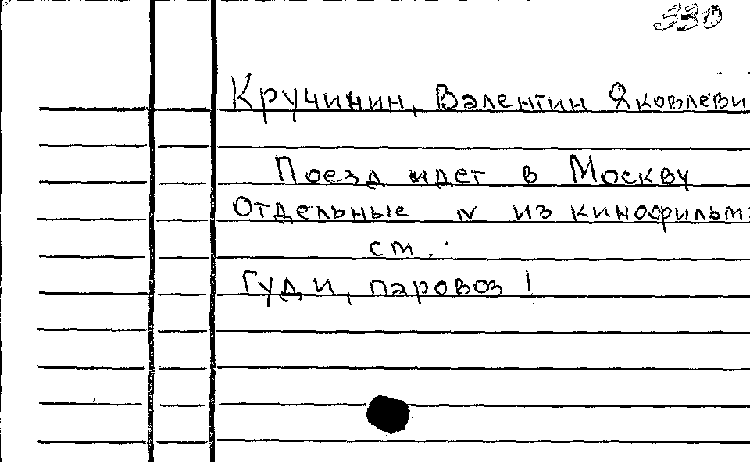 330
Кручинин, Валентин Яковлеви
Поезд идет в Москву
Отдельные № из кинофильма
см.
Гуди, паровоз!